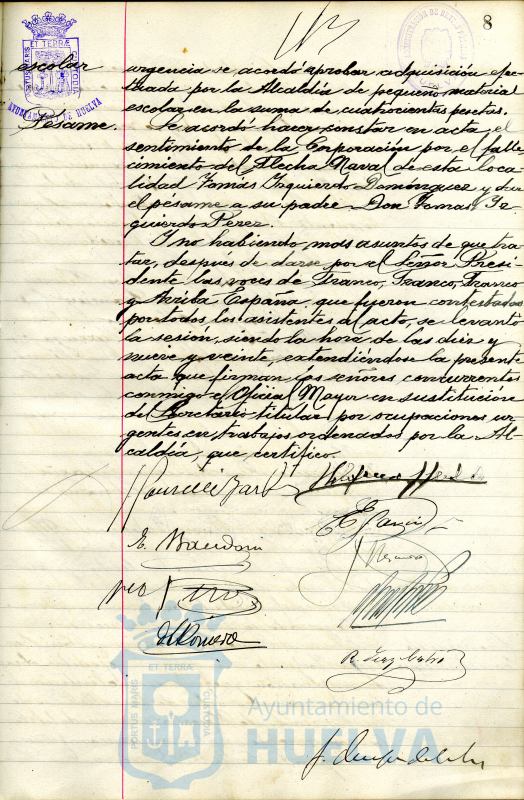 8
escolar
Pésame.
urgencia se acordó aprobar adquisición efec-
tuada por la Alcaldía de pequeño material
escolar en la suma de cuatrocientas pesetas.
Se acordó hacer constar en acta, el
sentimiento de la Corporación por el falle-
cimiento del Flecha Naval de esta loca-
lidad Tomás Izquierdo Domínguez y dar
el pésame a su padre Don Tomás Iz-
quierdo Pérez.
Y no habiendo, más asuntos de que tra-
tar, después de darse por el Señor Presi-
dente las voces de Franco, Franco, Franco
y Arriba España, que fueron contestadas
por todos los asistentes al acto, se levantó
la sesión, siendo la hora de las diez y
nueve y veinte, extendiéndose la presente
acta que firman los señores concurrentes
conmigo el Oficial Mayor en sustitución
del Secretario titular por ocupaciones ur-
gentes en trabajos ordenados por la Al-
caldía, que certifico.
PORTUS MARIS
ET TERRÆ
CUSTODIA
AYUNTAMIENTO DE HUELVA
Ayuntamiento de
HUELVA